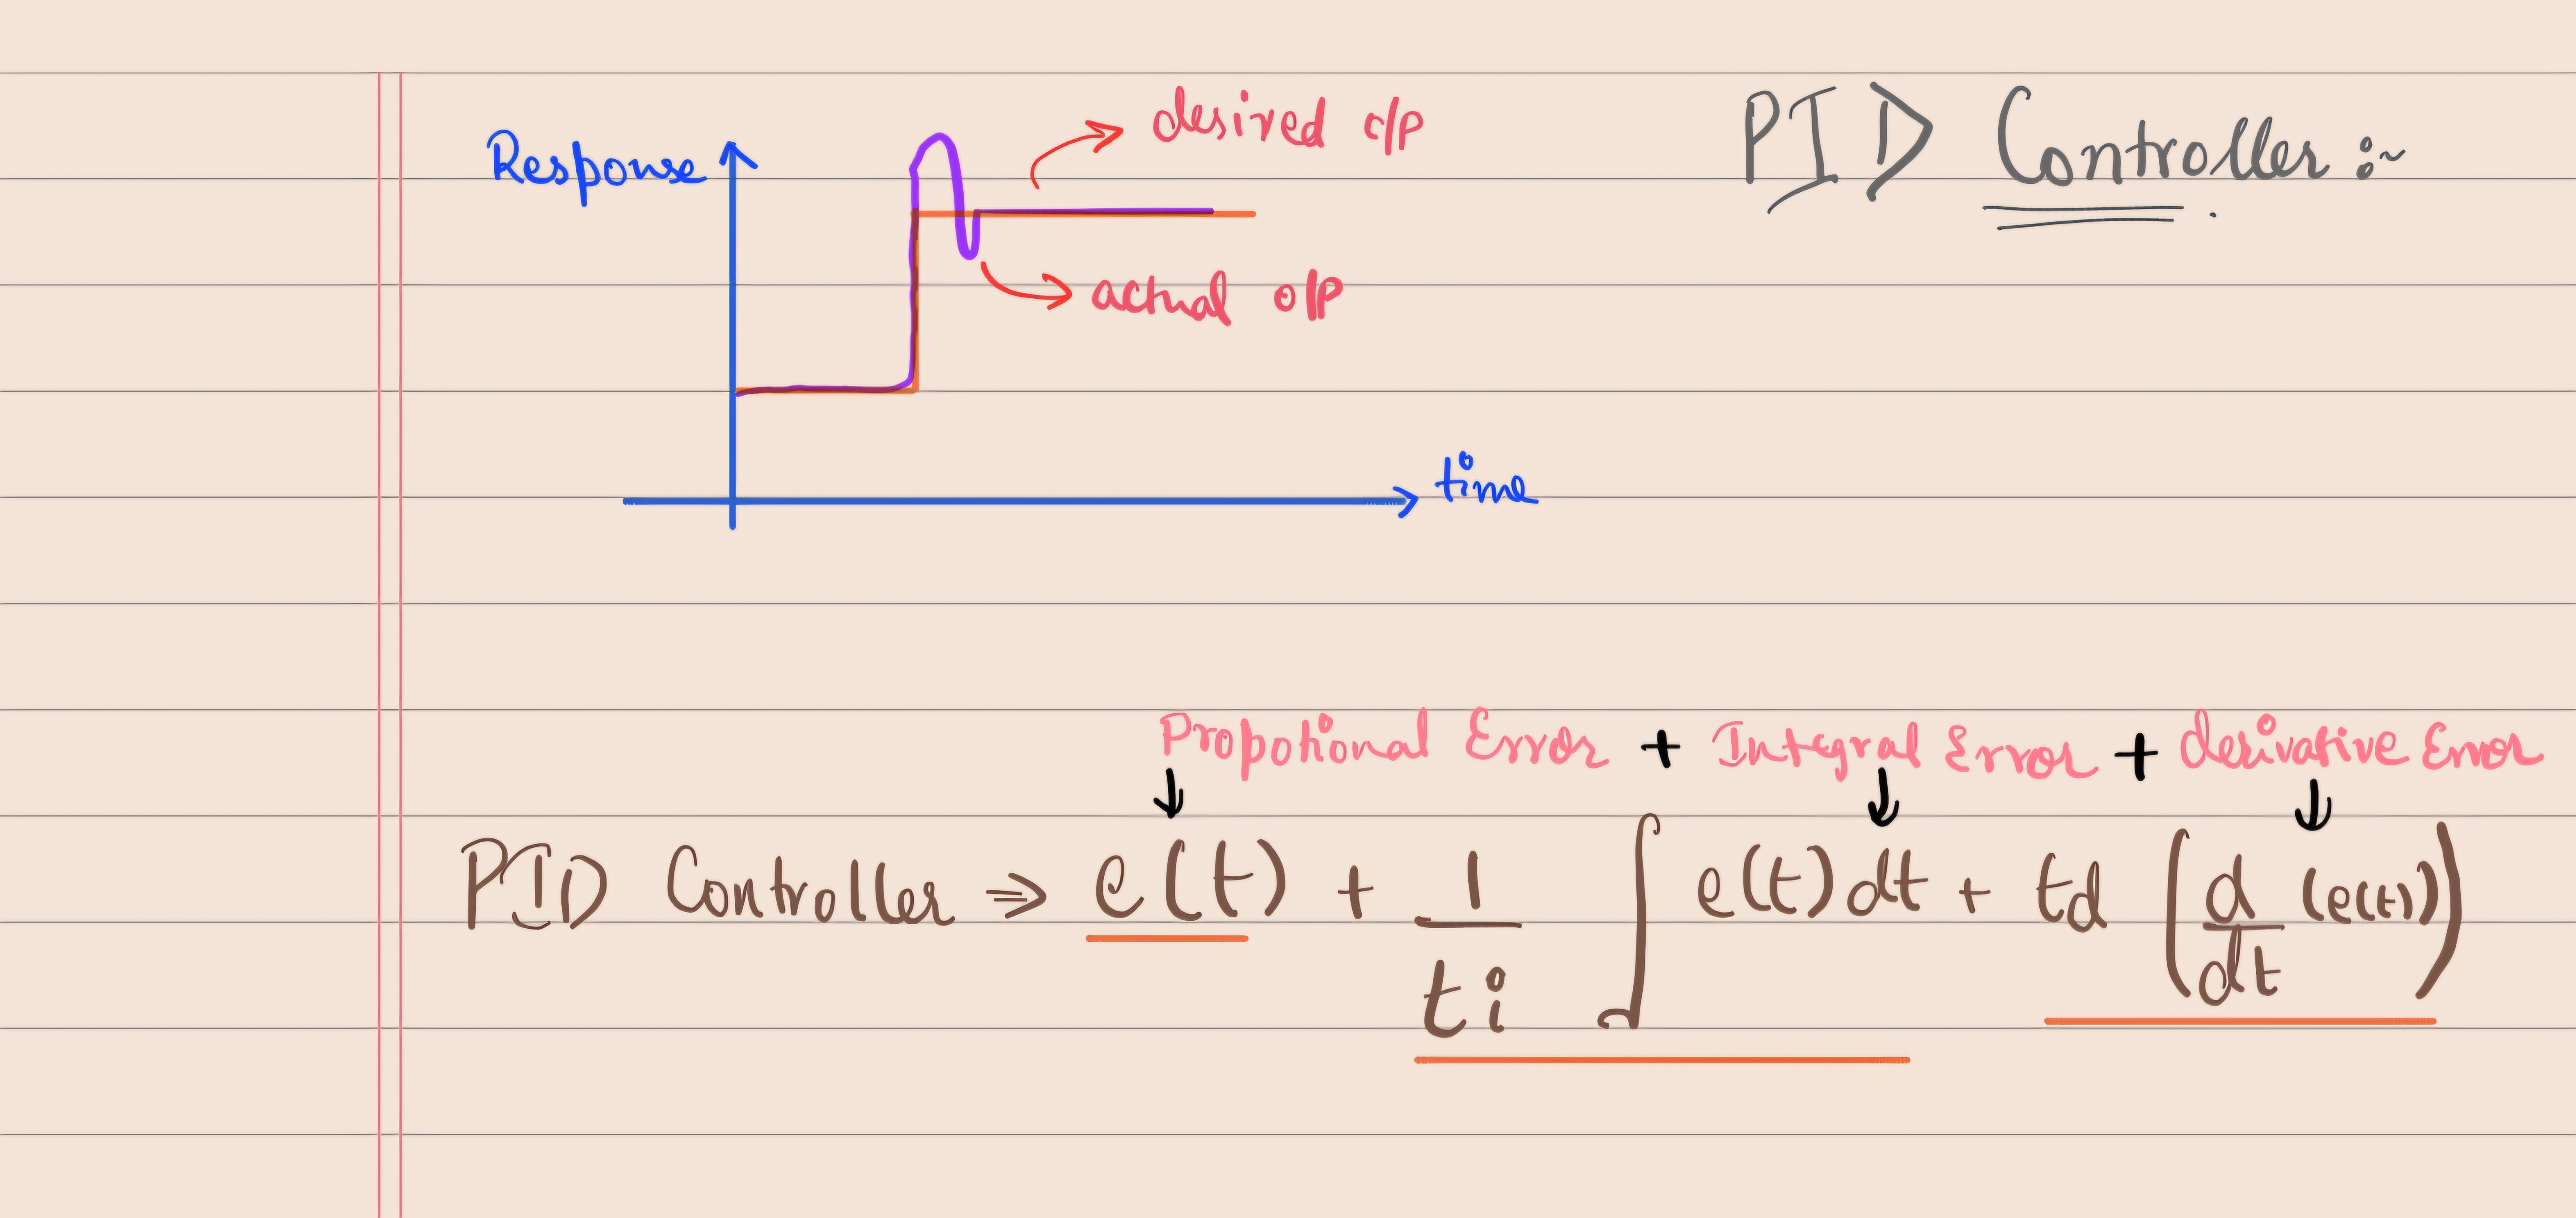 PID Controller :~
Response
desired o/p
actual o/p
time
Propotional Error + Integral Error + derivative Error
PID Controller ⇒ e(t) + 1/ti ∫ e(t) dt + td (d/dt (e(t)))